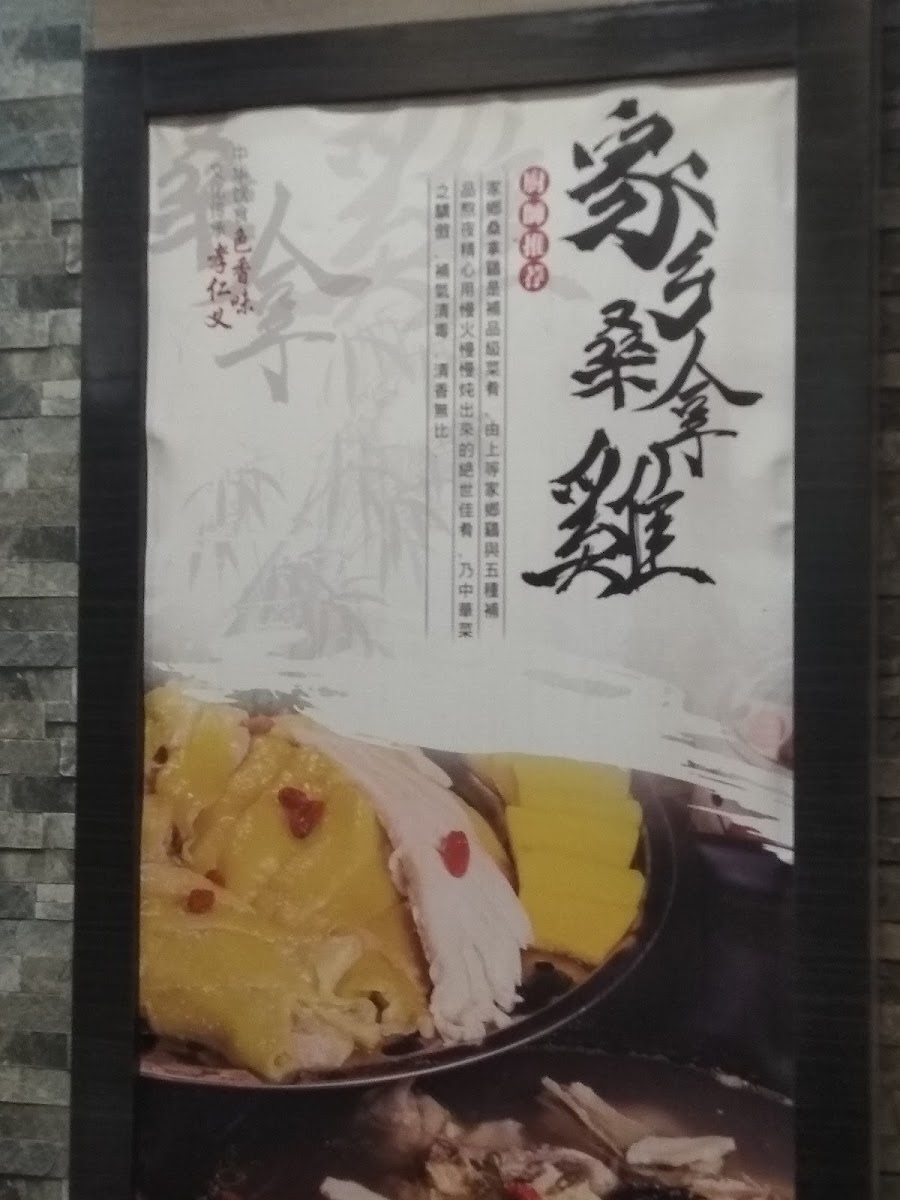 家乡
桑拿
雞
廚師推荐
家鄉桑拿雞是補品級菜肴﹑由上等家鄉雞與五種補
品熬夜精心用慢火慢慢炖出來的絕世佳肴﹐乃中華菜
之驕傲﹑補氣清毒﹑清香無比
中華飲食色香味
文化传承孝仁义
桑拿雞